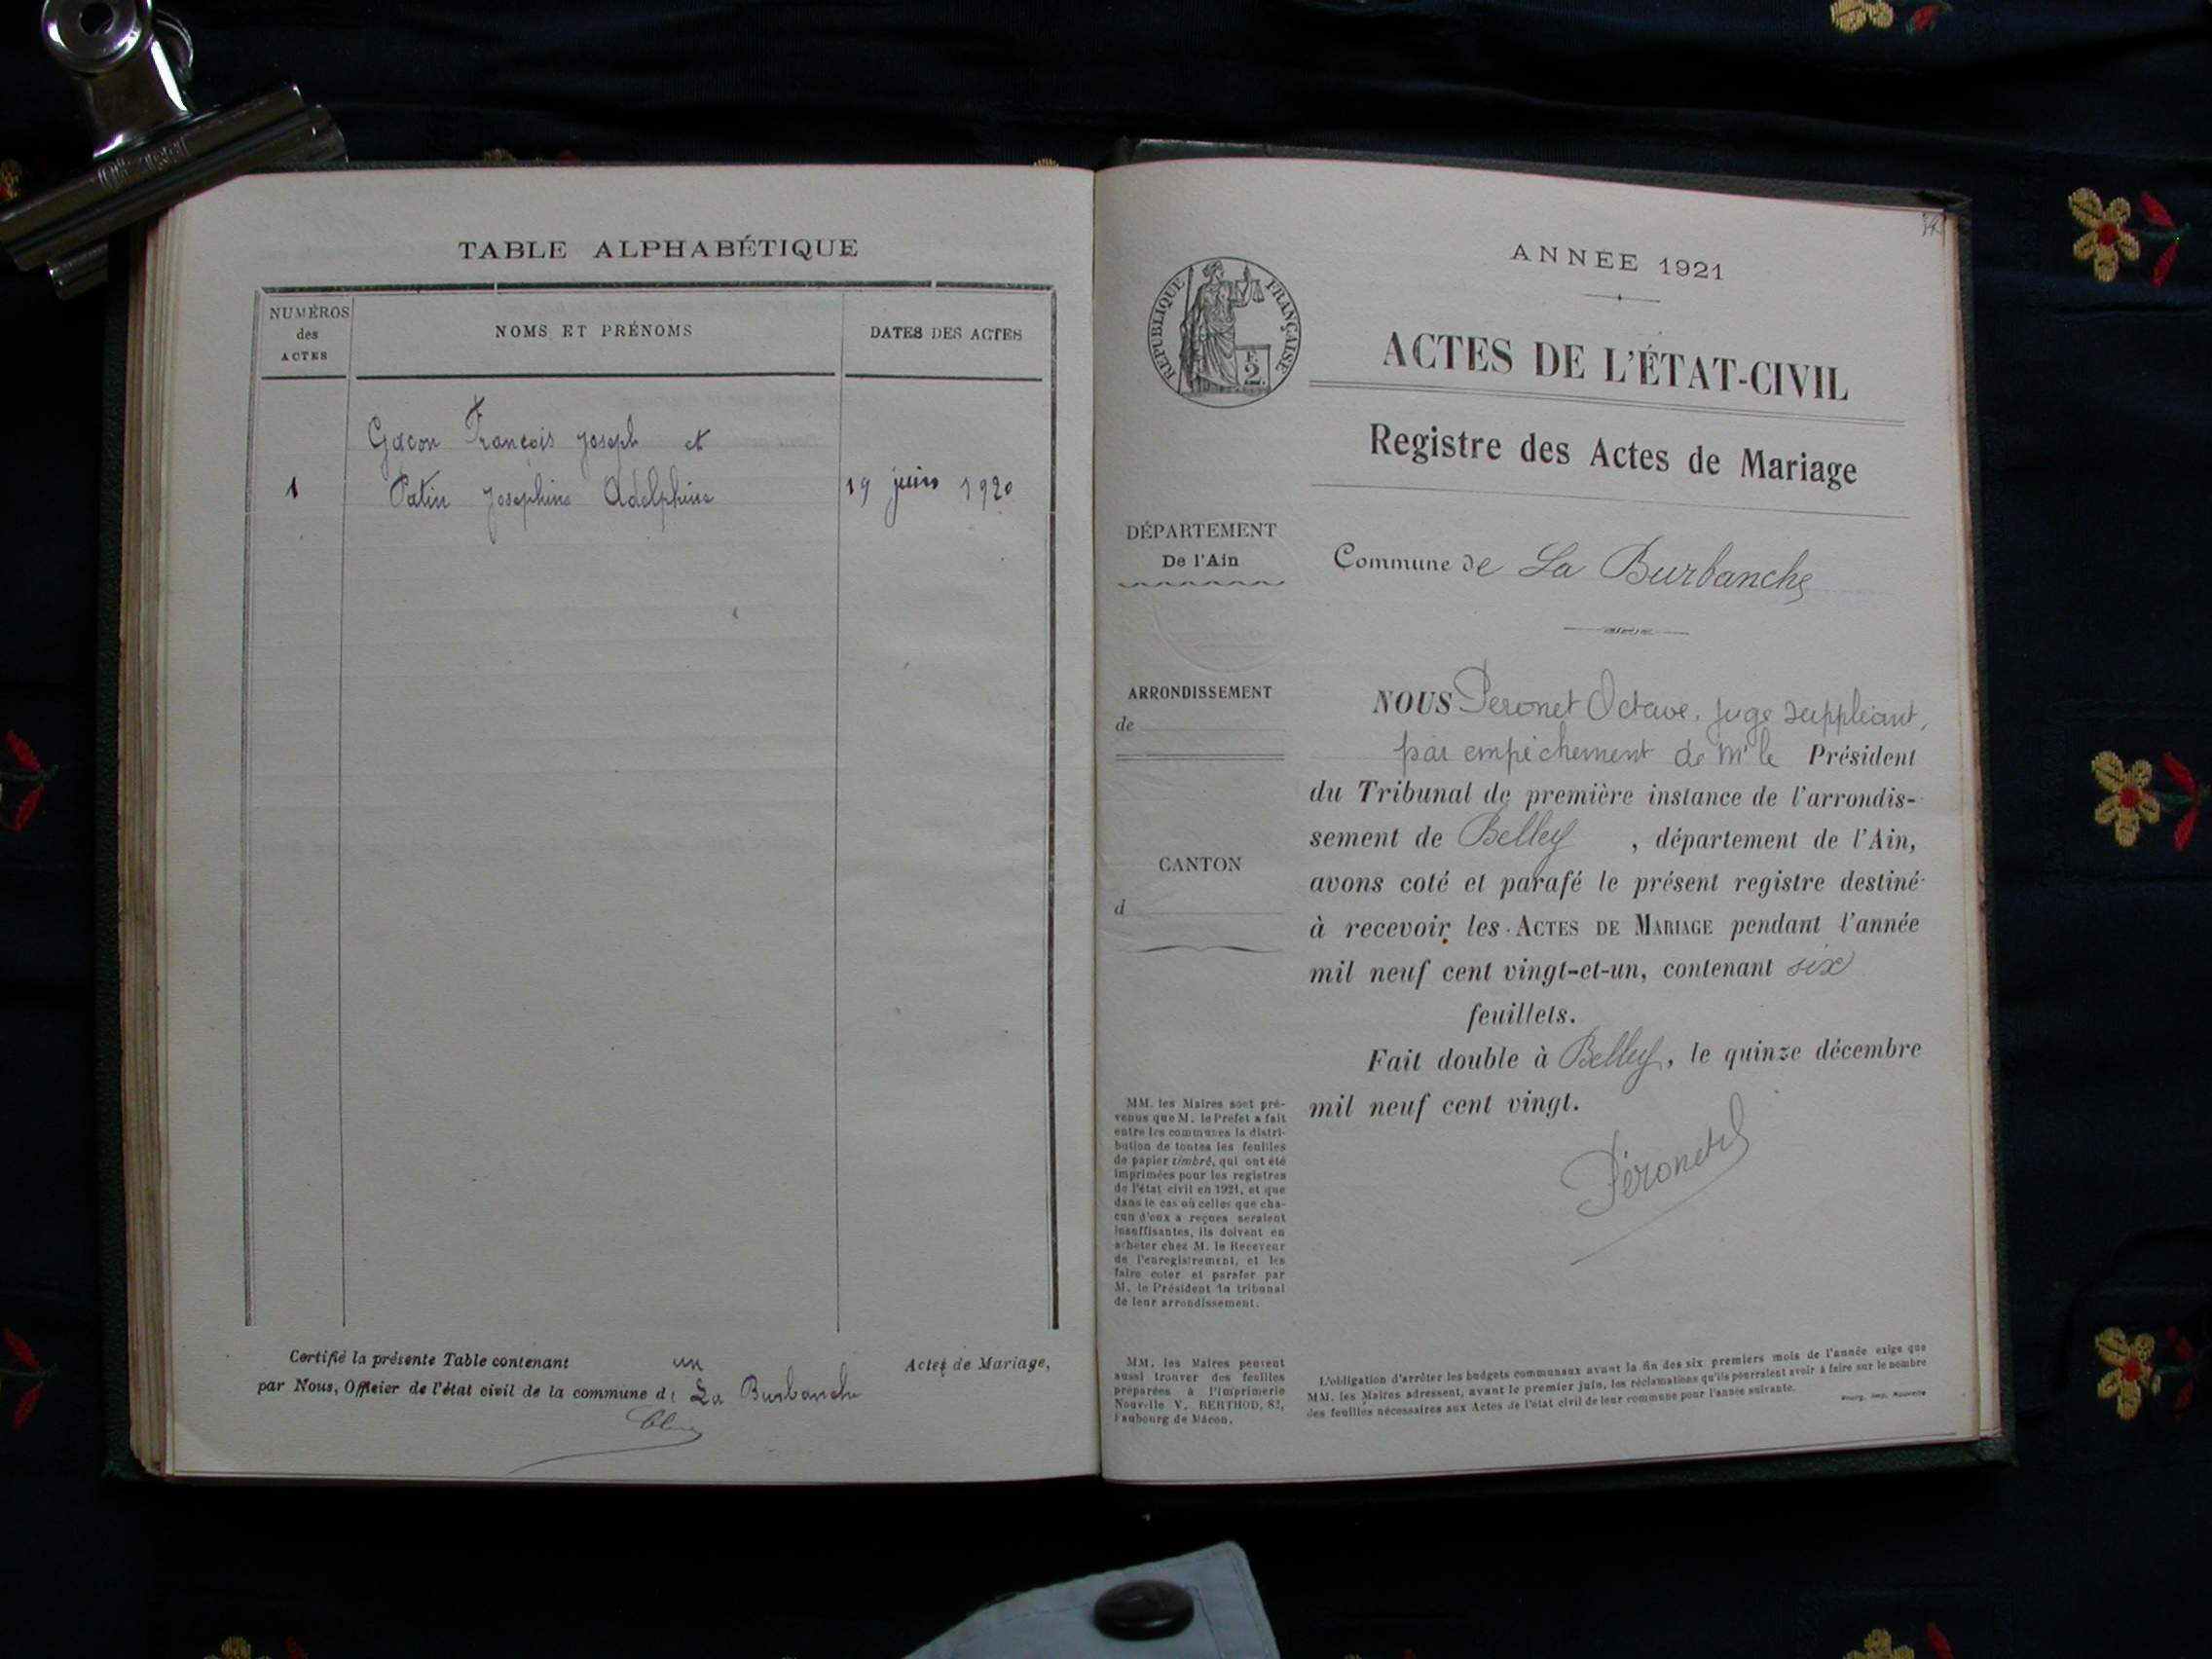 TABLE ALPHABÉTIQUE
NUMÉROS
des
ACTES
NOMS ET PRÉNOMS
DATES DES ACTES
Gacon François Joseph et
1 Patin Josephine Adelphine 19 juin 1920
Certifié la présente Table contenant un Actes de Mariage,
par Nous, Officier de l'état civil de la commune de La Burbanche
ANNÉE 1921
RÉPUBLIQUE FRANÇAISE
F.
2.
ACTES DE L'ÉTAT-CIVIL
Registre des Actes de Mariage
DÉPARTEMENT
De l'Ain
Commune de La Burbanche
ARRONDISSEMENT
de
CANTON
d
NOUS Peronet Octave, juge suppléant,
par empêchement de Mr le Président
du Tribunal de première instance de l'arrondis-
sement de Belley , département de l'Ain,
avons coté et parafé le présent registre destiné
à recevoir les ACTES DE MARIAGE pendant l'année
mil neuf cent vingt-et-un, contenant six
feuillets.
Fait double à Belley, le quinze décembre
mil neuf cent vingt.
Péronet
MM. les Maires sont pré-
venus que M. le Préfet a fait
entre les communes la distri-
bution de toutes les feuilles
de papier timbré, qui ont été
imprimées pour les registres
de l'état civil en 1921, et que
dans le cas où celles que cha-
cun d'eux a reçues seraient
insuffisantes, ils doivent en
acheter chez M. le Receveur
de l'enregistrement, et les
faire coter et parafer par
M. le Président du tribunal
de leur arrondissement.
MM. les Maires peuvent
aussi trouver des feuilles
préparées à l'imprimerie
Nouvelle V. BERTHOD, 82,
Faubourg de Mâcon.
L'obligation d'arrêter les budgets communaux avant la fin des six premiers mois de l'année exige que
MM. les Maires adressent, avant le premier juin, les réclamations qu'ils pourraient avoir à faire sur le nombre
des feuilles nécessaires aux Actes de l'état civil de leur commune pour l'année suivante.
Bourg, imp. Nouvelle